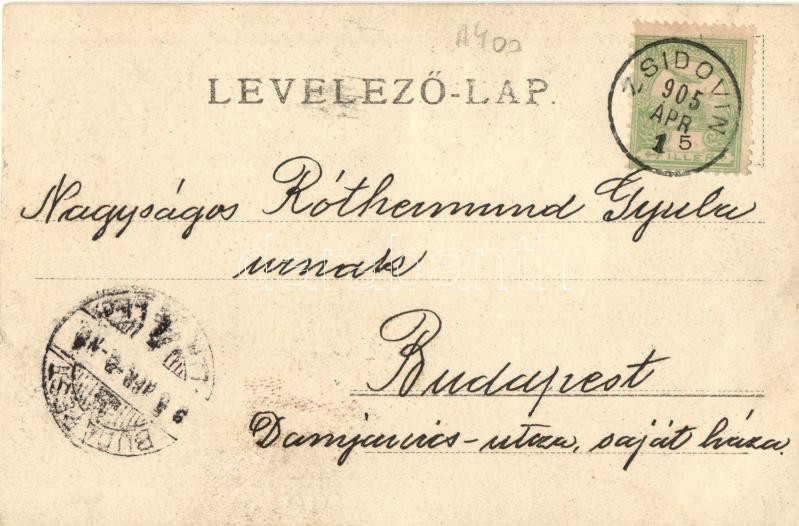 A400
LEVELEZŐ-LAP.
ZSIDOVIN
905
ÁPR
15
FILLÉR
Nagyságos Róthermund Gyula
urnak
Budapest
Damjanics-utcza, saját háza.
BUDAPEST
905 APR
darabanth